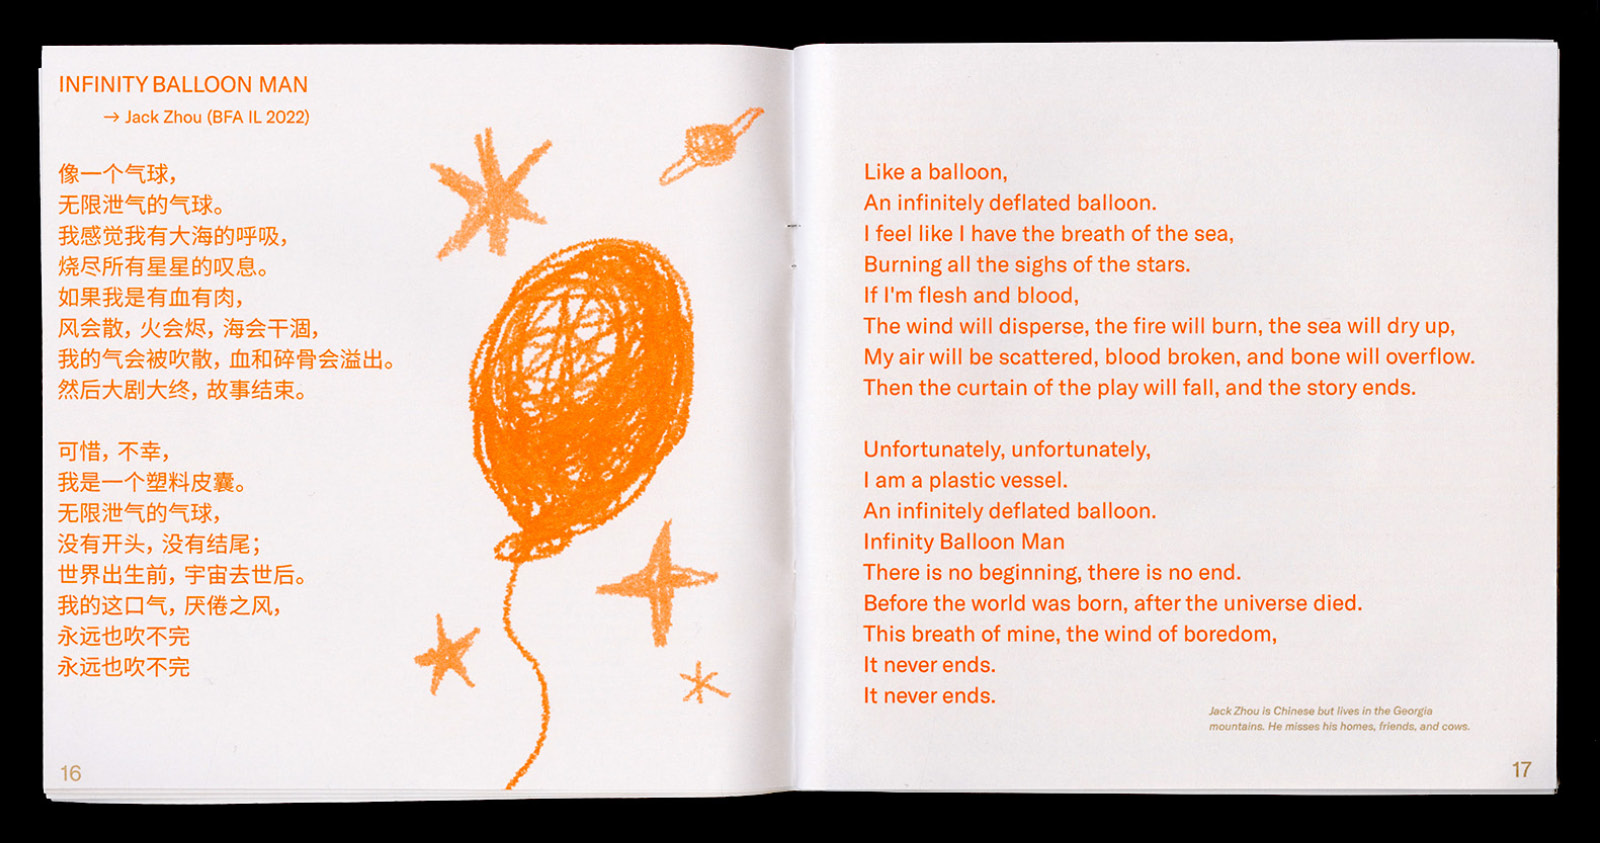 INFINITY BALLOON MAN
→ Jack Zhou (BFA IL 2022)
像一个气球，
无限泄气的气球。
我感觉我有大海的呼吸，
烧尽所有星星的叹息。
如果我是有血有肉，
风会散，火会烬，海会干涸，
我的气会被吹散，血和碎骨会溢出。
然后大剧大终，故事结束。
可惜，不幸，
我是一个塑料皮囊。
无限泄气的气球，
没有开头，没有结尾；
世界出生前，宇宙去世后。
我的这口气，厌倦之风，
永远也吹不完
永远也吹不完
16
Like a balloon,
An infinitely deflated balloon.
I feel like I have the breath of the sea,
Burning all the sighs of the stars.
If I'm flesh and blood,
The wind will disperse, the fire will burn, the sea will dry up,
My air will be scattered, blood broken, and bone will overflow.
Then the curtain of the play will fall, and the story ends.
Unfortunately, unfortunately,
I am a plastic vessel.
An infinitely deflated balloon.
Infinity Balloon Man
There is no beginning, there is no end.
Before the world was born, after the universe died.
This breath of mine, the wind of boredom,
It never ends.
It never ends.
Jack Zhou is Chinese but lives in the Georgia
mountains. He misses his homes, friends, and cows.
17